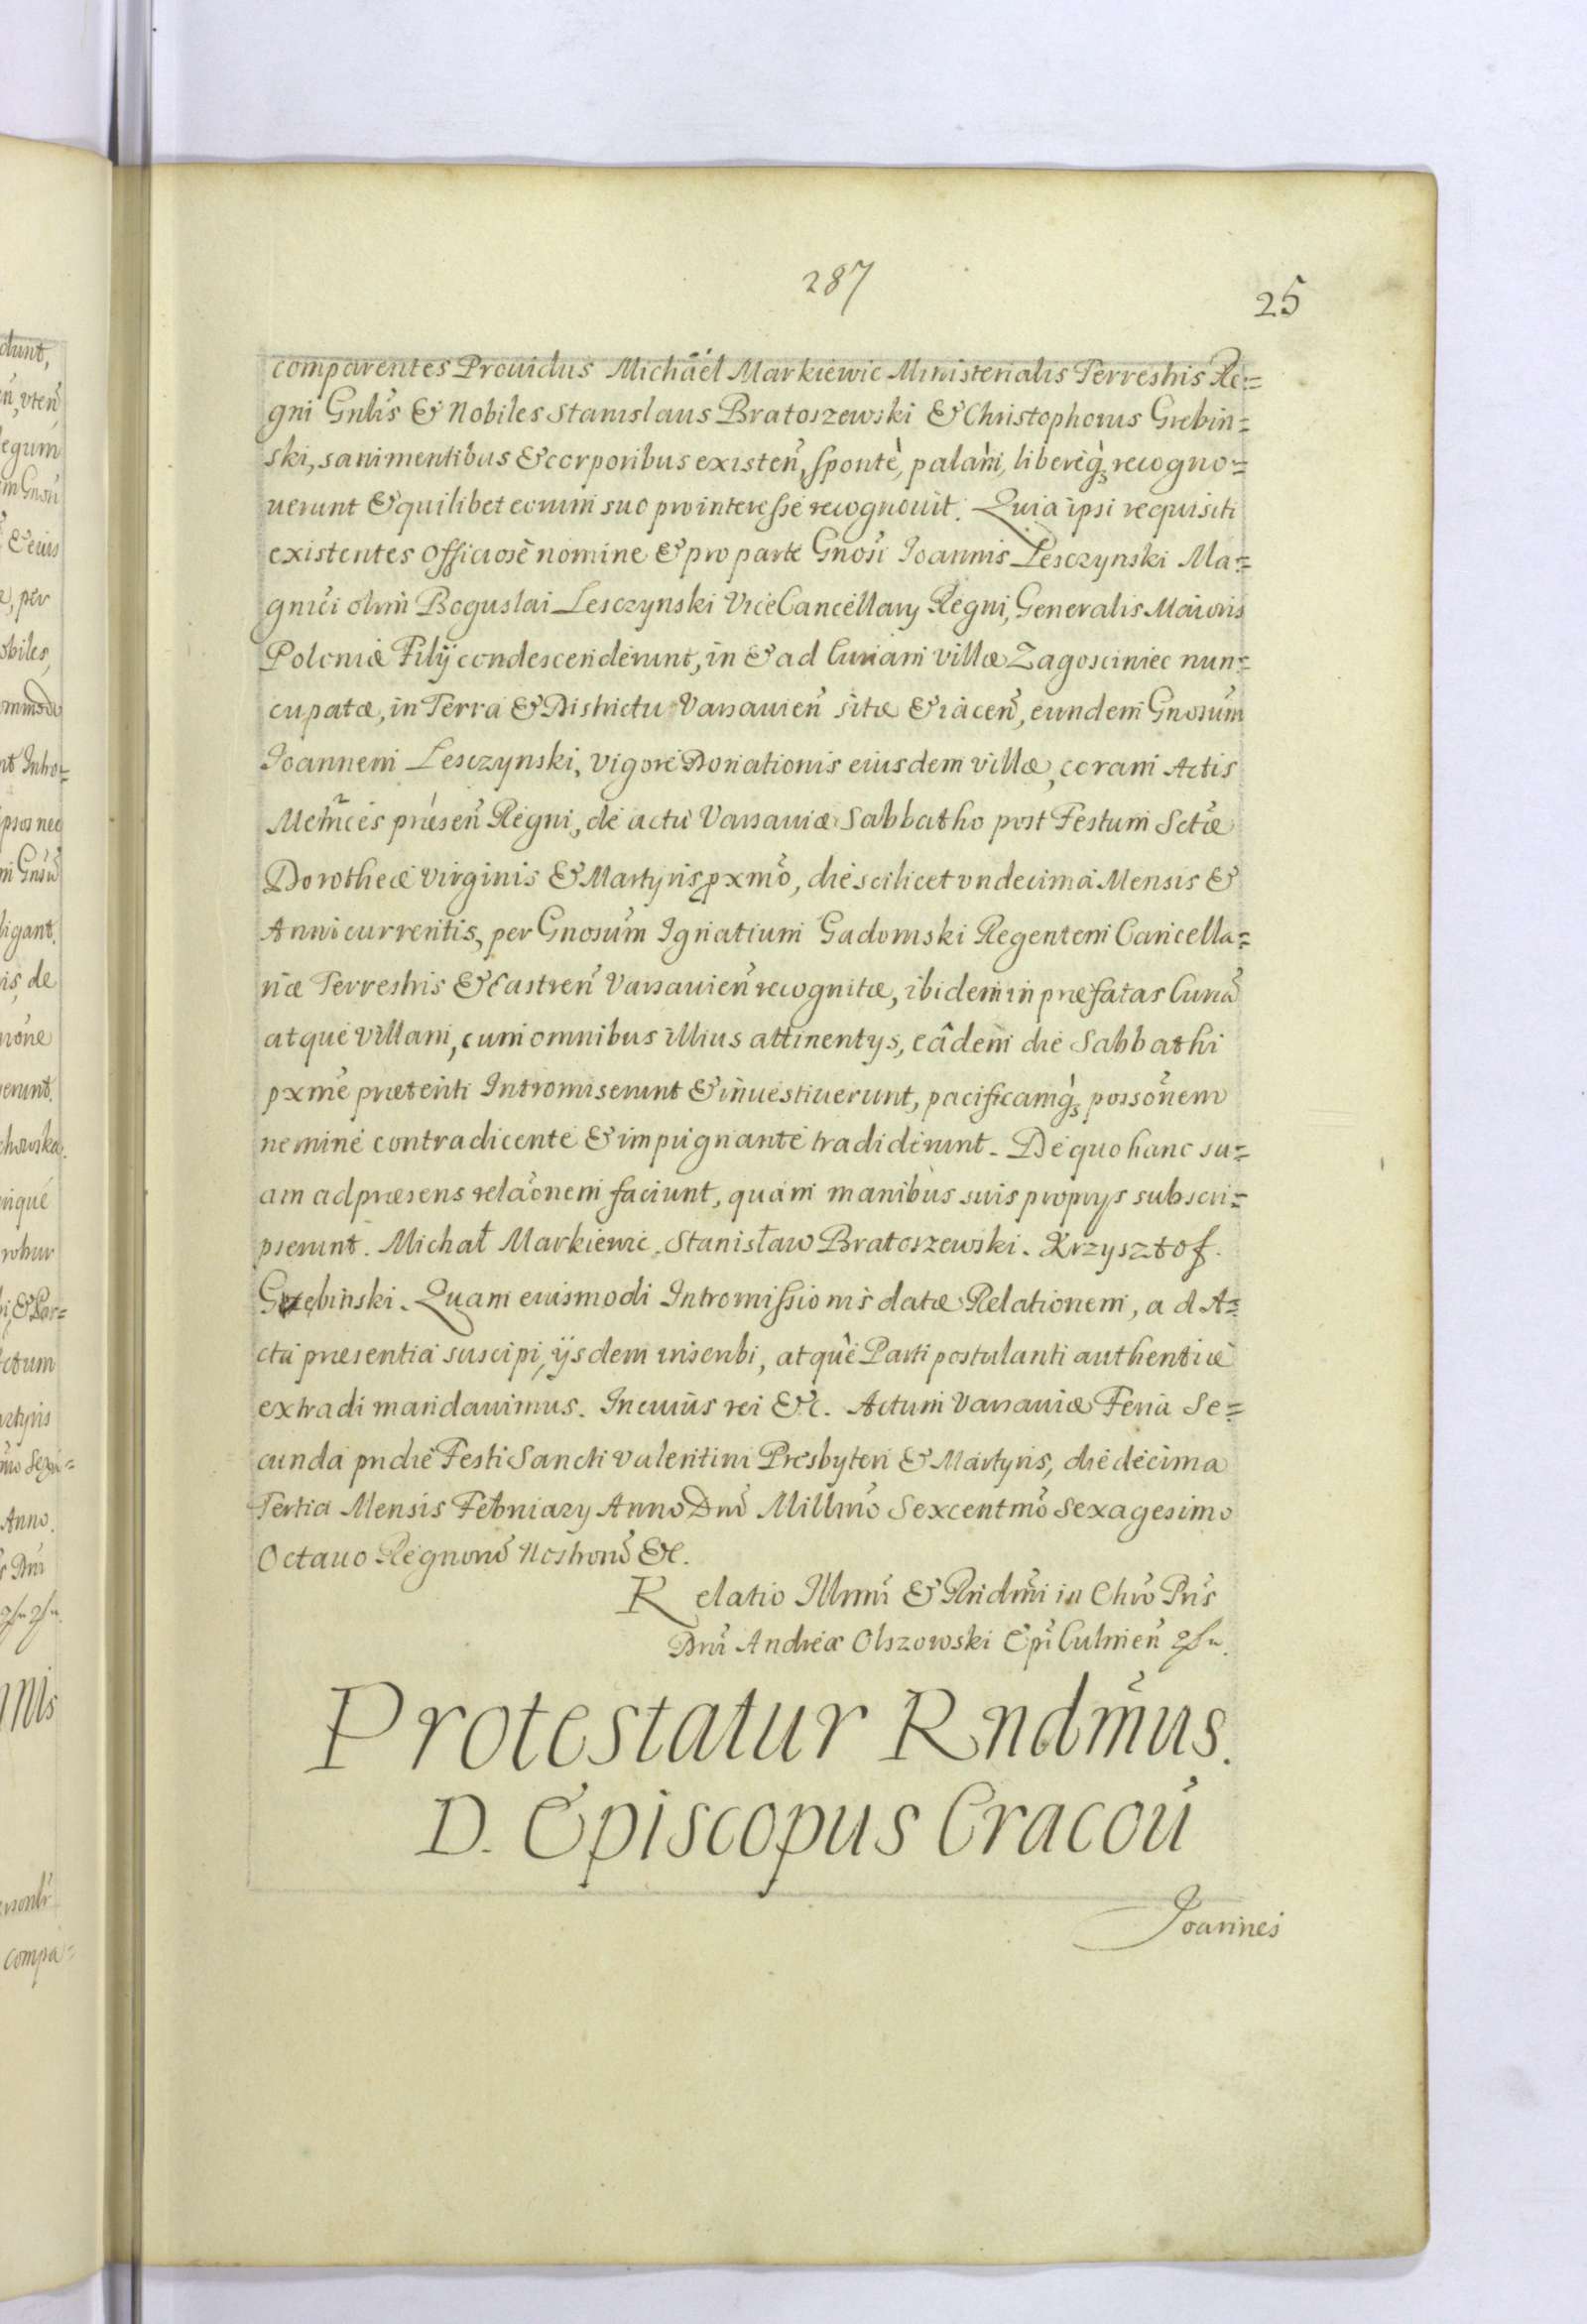 287
25
comparentes Prouidus Michaël Markiewic Ministerialis Terrestris Re=
gni Gnlis & Nobiles Stanislaus Bratoszewski & Christophorus Grebin=
ski, sani mentibus & corporibus existeñ, sponte, palam, libereq; recogno=
uerunt & quilibet eorum suo pro interesse recognouit. Quia ipsi requisiti
existentes officiose nomine & pro parte Gnosi Ioannis Lesczynski Ma=
gnici olim Boguslai Lesczynski ViceCancellary Regni, Generalis Maioris
Poloniæ Filÿ condescenderunt, in & ad Curiam villæ Zagosciniec nun=
cupatæ, in Terra & Districtu Varsauieñ sitæ & iaceñ, eundem Gnosum
Ioannem Lesczynski, vigore Donationis eiusdem villæ, coram Actis
Metrices præseñ Regni, de actu Varsauiæ Sabbatho post Festum Sctæ
Dorotheæ virginis & Martyris pxmo, die scilicet vndecima Mensis &
Anni currentis, per Gnosum Ignatium Gadomski Regentem Cancella=
riæ Terrestris & Castreñ Varsauieñ recognitæ, ibidem in præfatas Curiã
atque villam, cum omnibus illius attinentys, eâdem die Sabbathi
pxme præteriti Intromiserunt & inuestiuerunt, pacificamq; possonem
nemine contradicente & impugnante tradiderunt. De quo hanc su=
am ad præsens relaonem faciunt, quam manibus suis proprys subscri=
pserunt. Michał Markiewic. Stanisław Bratoszewski. Krzysztof.
Grzebinski. Quam eiusmodi Intromissionis datæ Relationem, ad A=
cta præsentia suscipi, ijsdem inscribi, atque Parti postulanti authentice
extradi mandauimus. In cuius rei &c. Actum Varsauiæ Feria Se=
cunda pridie Festi Sancti Valentini Presbyteri & Martyris, die decima
Tertia Mensis Februarÿ Anno Dni Millmo Sexcentmo Sexagesimo
Octauo Regnorũ Nostrorũ &c.
Relatio Illmi & Rndmi in Chro Pris
Dni Andreæ Olszowski Epi Culmeñ
Protestatur Rndmus.
D. Episcopus Cracou
Joannes